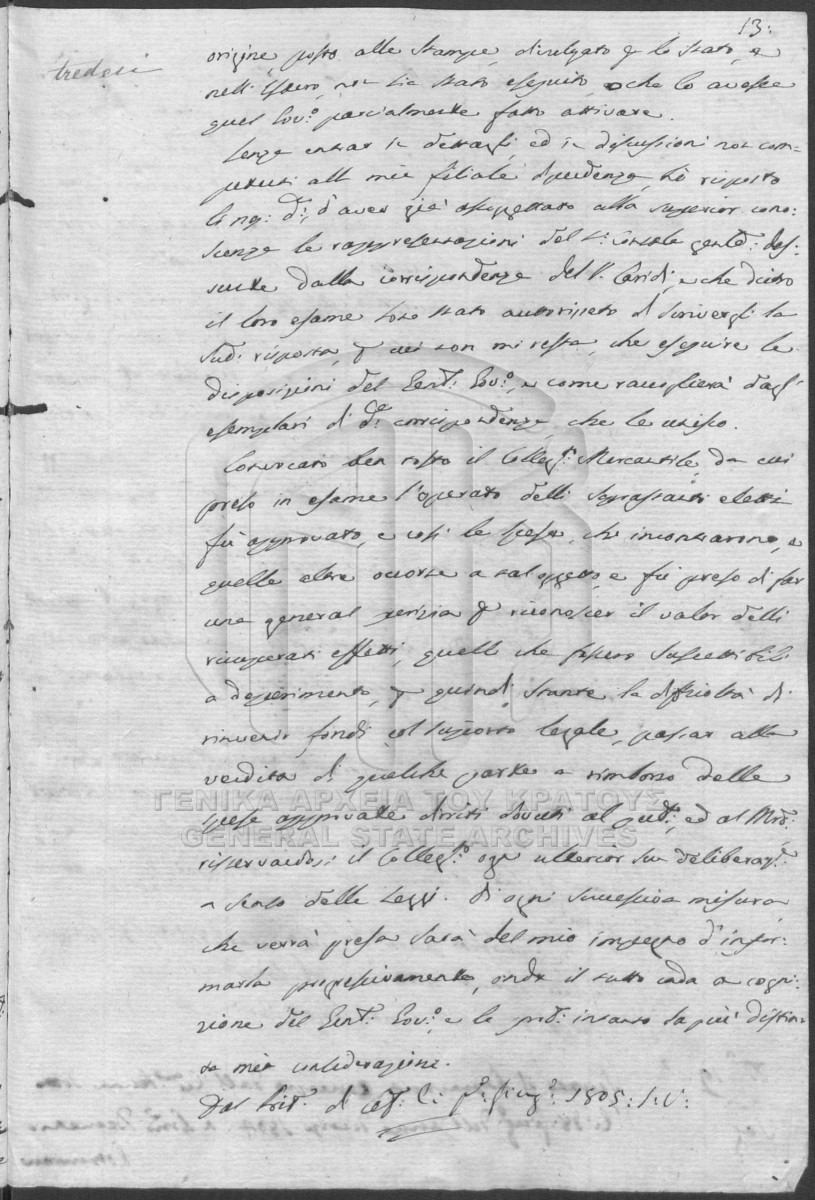 13:
tredeci
origine, posto alle stampe, divulgato p lo stato, e
nell'Estero, non sia stato eseguito, o che lo avesse
quel Gov:o parcialmente fatto attivare.
Senza entrar in dettagli, ed in discussioni non com=
petenti alla mia filiale dipendenza, hò risposto
li d:i, d'aver già assogettato alla superior cono:
scenza le rappresentazioni del S: Console gentl: des:
sunte dalla corrispondenza del S. Caridi, e che dietro
il loro esame sono stato autorizzato di scrivergli la
sud: risposta, p cui non mi resta, che eseguire le
disposizioni del Gov:o, e come racoglierà dagl'
esemplari di d:a corrispondenza, che le unisco.
Convocato ben tosto il Colleg:o Mercantile, da cui
preso in esame l'operato delli soprastanti eletti
fù approvato, e così le spese, che incontrarono, e
quelle altre occorse a tal oggetto, e fù preso di far
una general perizia p riconoscer il valor delli
ricuperati effetti, quelli che fossero suscettibili
a deperimento, p quindi stante la difficoltà di
rinvenir fondi col suporto legale, passar alla
vendita di qualche parte a rimborso delle
spese approvate diritti dovuti al ed al
riservandosi il Colleg:o ogn'ulterior sua deliberaz:e
a senso delle Leggi. Di ogni successiva misura
che verrà presa sarà del mio impegno d'infor:
marla progressivamente, onde il tutto cada a cogni:
zione del Gov:o, e le intanto la più distin:
ta mia considerazione.
Dal di li p:o 1805: S.V:
ΓΕΝΙΚΑ ΑΡΧΕΙΑ ΤΟΥ ΚΡΑΤΟΥΣ
GENERAL STATE ARCHIVES